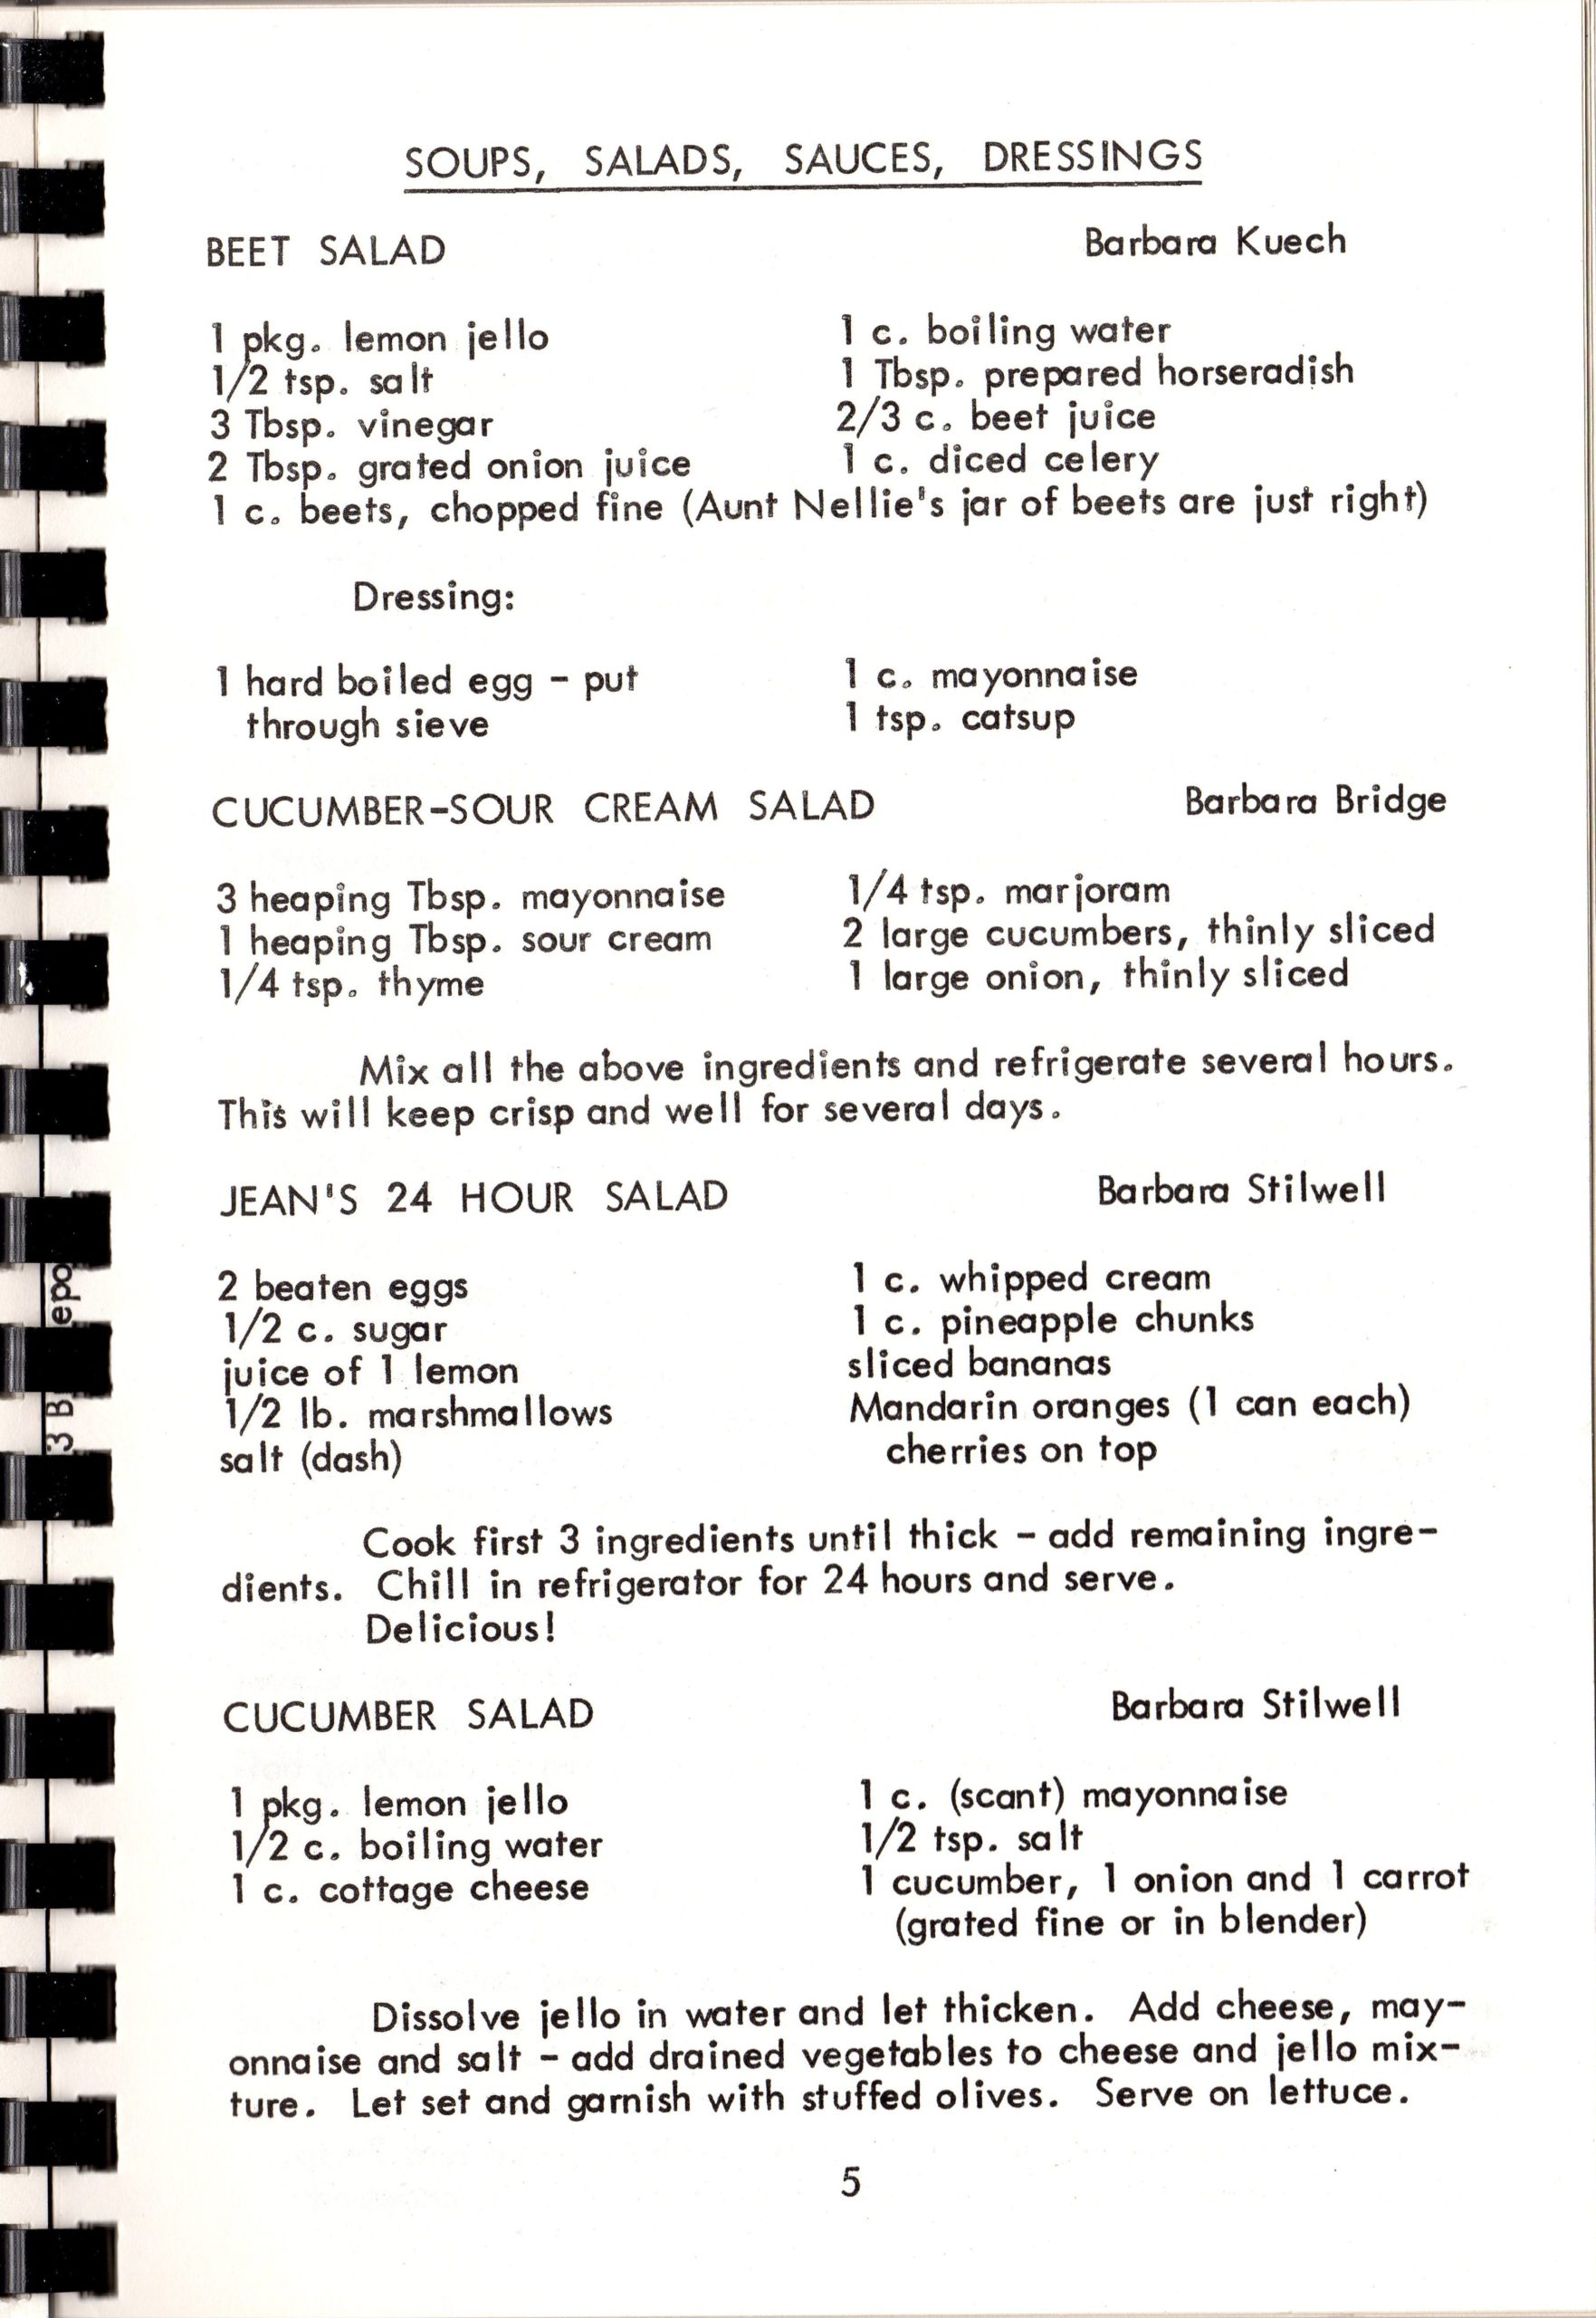 SOUPS, SALADS, SAUCES, DRESSINGS
BEET SALAD Barbara Kuech
1 pkg. lemon jello 1 c. boiling water
1/2 tsp. salt 1 Tbsp. prepared horseradish
3 Tbsp. vinegar 2/3 c. beet juice
2 Tbsp. grated onion juice 1 c. diced celery
1 c. beets, chopped fine (Aunt Nellie's jar of beets are just right)
Dressing:
1 hard boiled egg - put 1 c. mayonnaise
through sieve 1 tsp. catsup
CUCUMBER-SOUR CREAM SALAD Barbara Bridge
3 heaping Tbsp. mayonnaise 1/4 tsp. marjoram
1 heaping Tbsp. sour cream 2 large cucumbers, thinly sliced
1/4 tsp. thyme 1 large onion, thinly sliced
Mix all the above ingredients and refrigerate several hours.
This will keep crisp and well for several days.
JEAN'S 24 HOUR SALAD Barbara Stilwell
2 beaten eggs 1 c. whipped cream
1/2 c. sugar 1 c. pineapple chunks
juice of 1 lemon sliced bananas
1/2 lb. marshmallows Mandarin oranges (1 can each)
salt (dash) cherries on top
Cook first 3 ingredients until thick - add remaining ingre-
dients. Chill in refrigerator for 24 hours and serve.
Delicious!
CUCUMBER SALAD Barbara Stilwell
1 pkg. lemon jello 1 c. (scant) mayonnaise
1/2 c. boiling water 1/2 tsp. salt
1 c. cottage cheese 1 cucumber, 1 onion and 1 carrot
(grated fine or in blender)
Dissolve jello in water and let thicken. Add cheese, may-
onnaise and salt - add drained vegetables to cheese and jello mix-
ture. Let set and garnish with stuffed olives. Serve on lettuce.
5